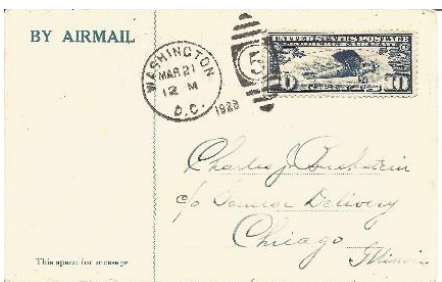 BY AIRMAIL
WASHINGTON
MAR 21
12 M
D.C.
1928
5
UNITED STATES POSTAGE
LINDBERGH AIR MAIL
10 10
Charles J.
c/o General Delivery
Chicago
Illinois
This space for message